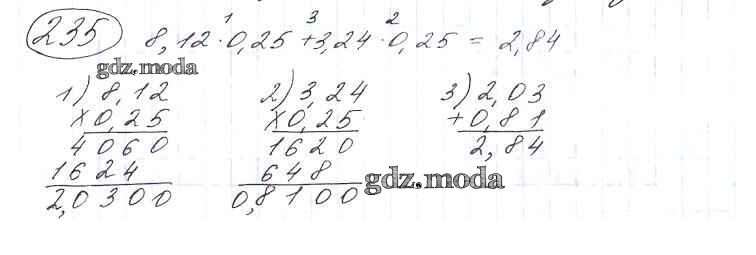 235 8,12 · 0,25 + 3,24 · 0,25 = 2,84
1 3 2
gdz.moda
1) 8,12 2) 3,24 3) 2,03
× 0,25 × 0,25 + 0,81
4060 1620 2,84
1624 648
gdz.moda
2,0300 0,8100